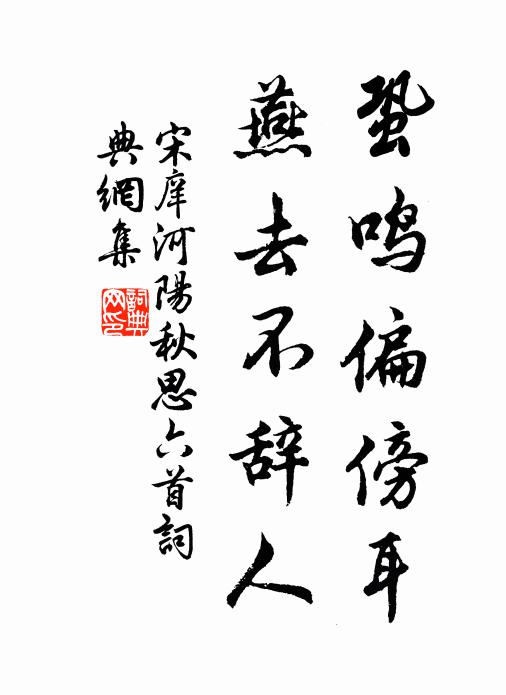 蛩鸣偏傍耳
燕去不辞人
宋庠河陽秋思六首詞
典網集
詞典
网印